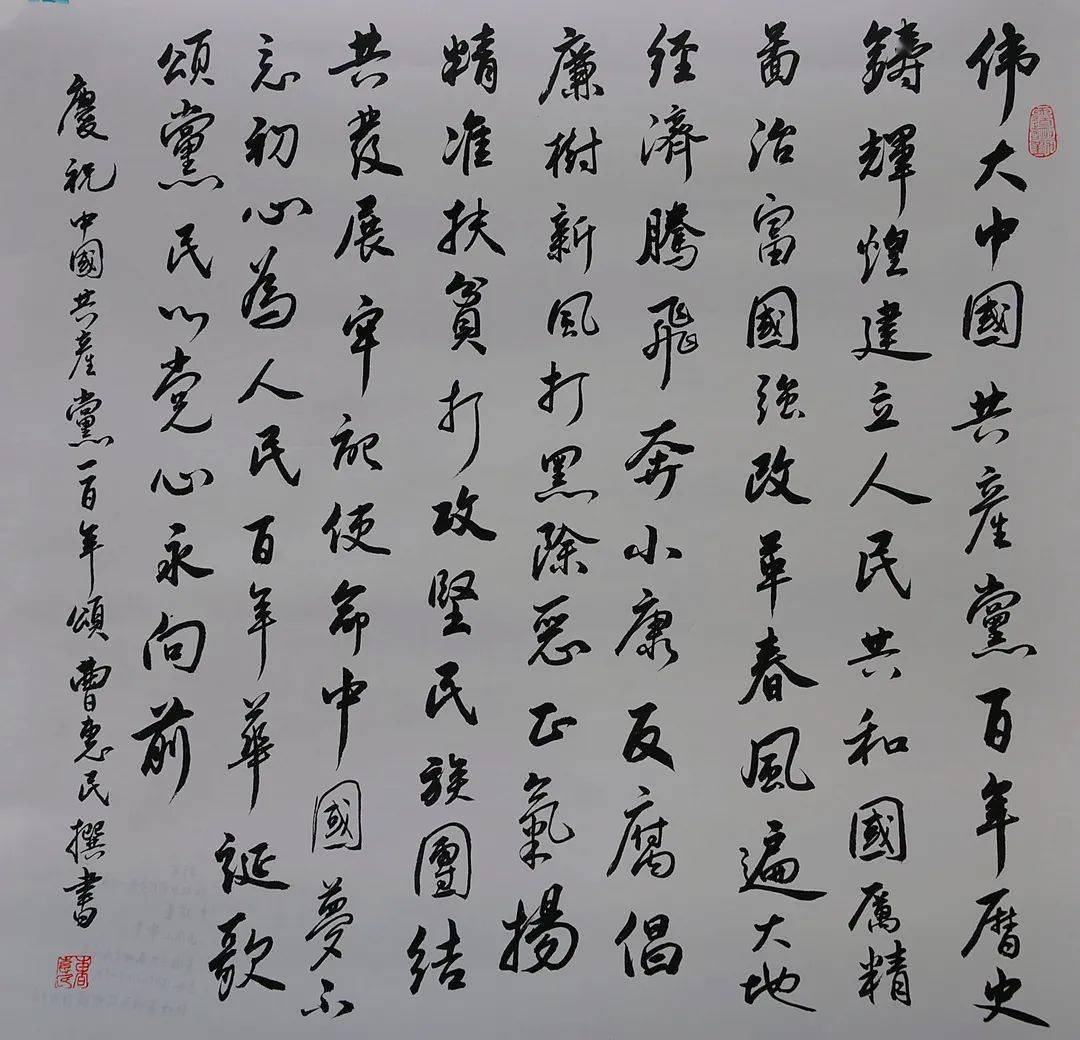 伟大中國共產黨百年曆史
鑄輝煌建立人民共和國厲精
啚治富國強改革春風遍大地
经濟騰飛奔小康反腐倡
廉樹新風打黑除惡正氣揚
精准扶貧打攻堅民族團结
共發展牢記使命中國夢不
忘初心為人民百年華誕歌
頌黨民心党心永向前
慶祝中國共產黨一百年頌曹惠民撰書